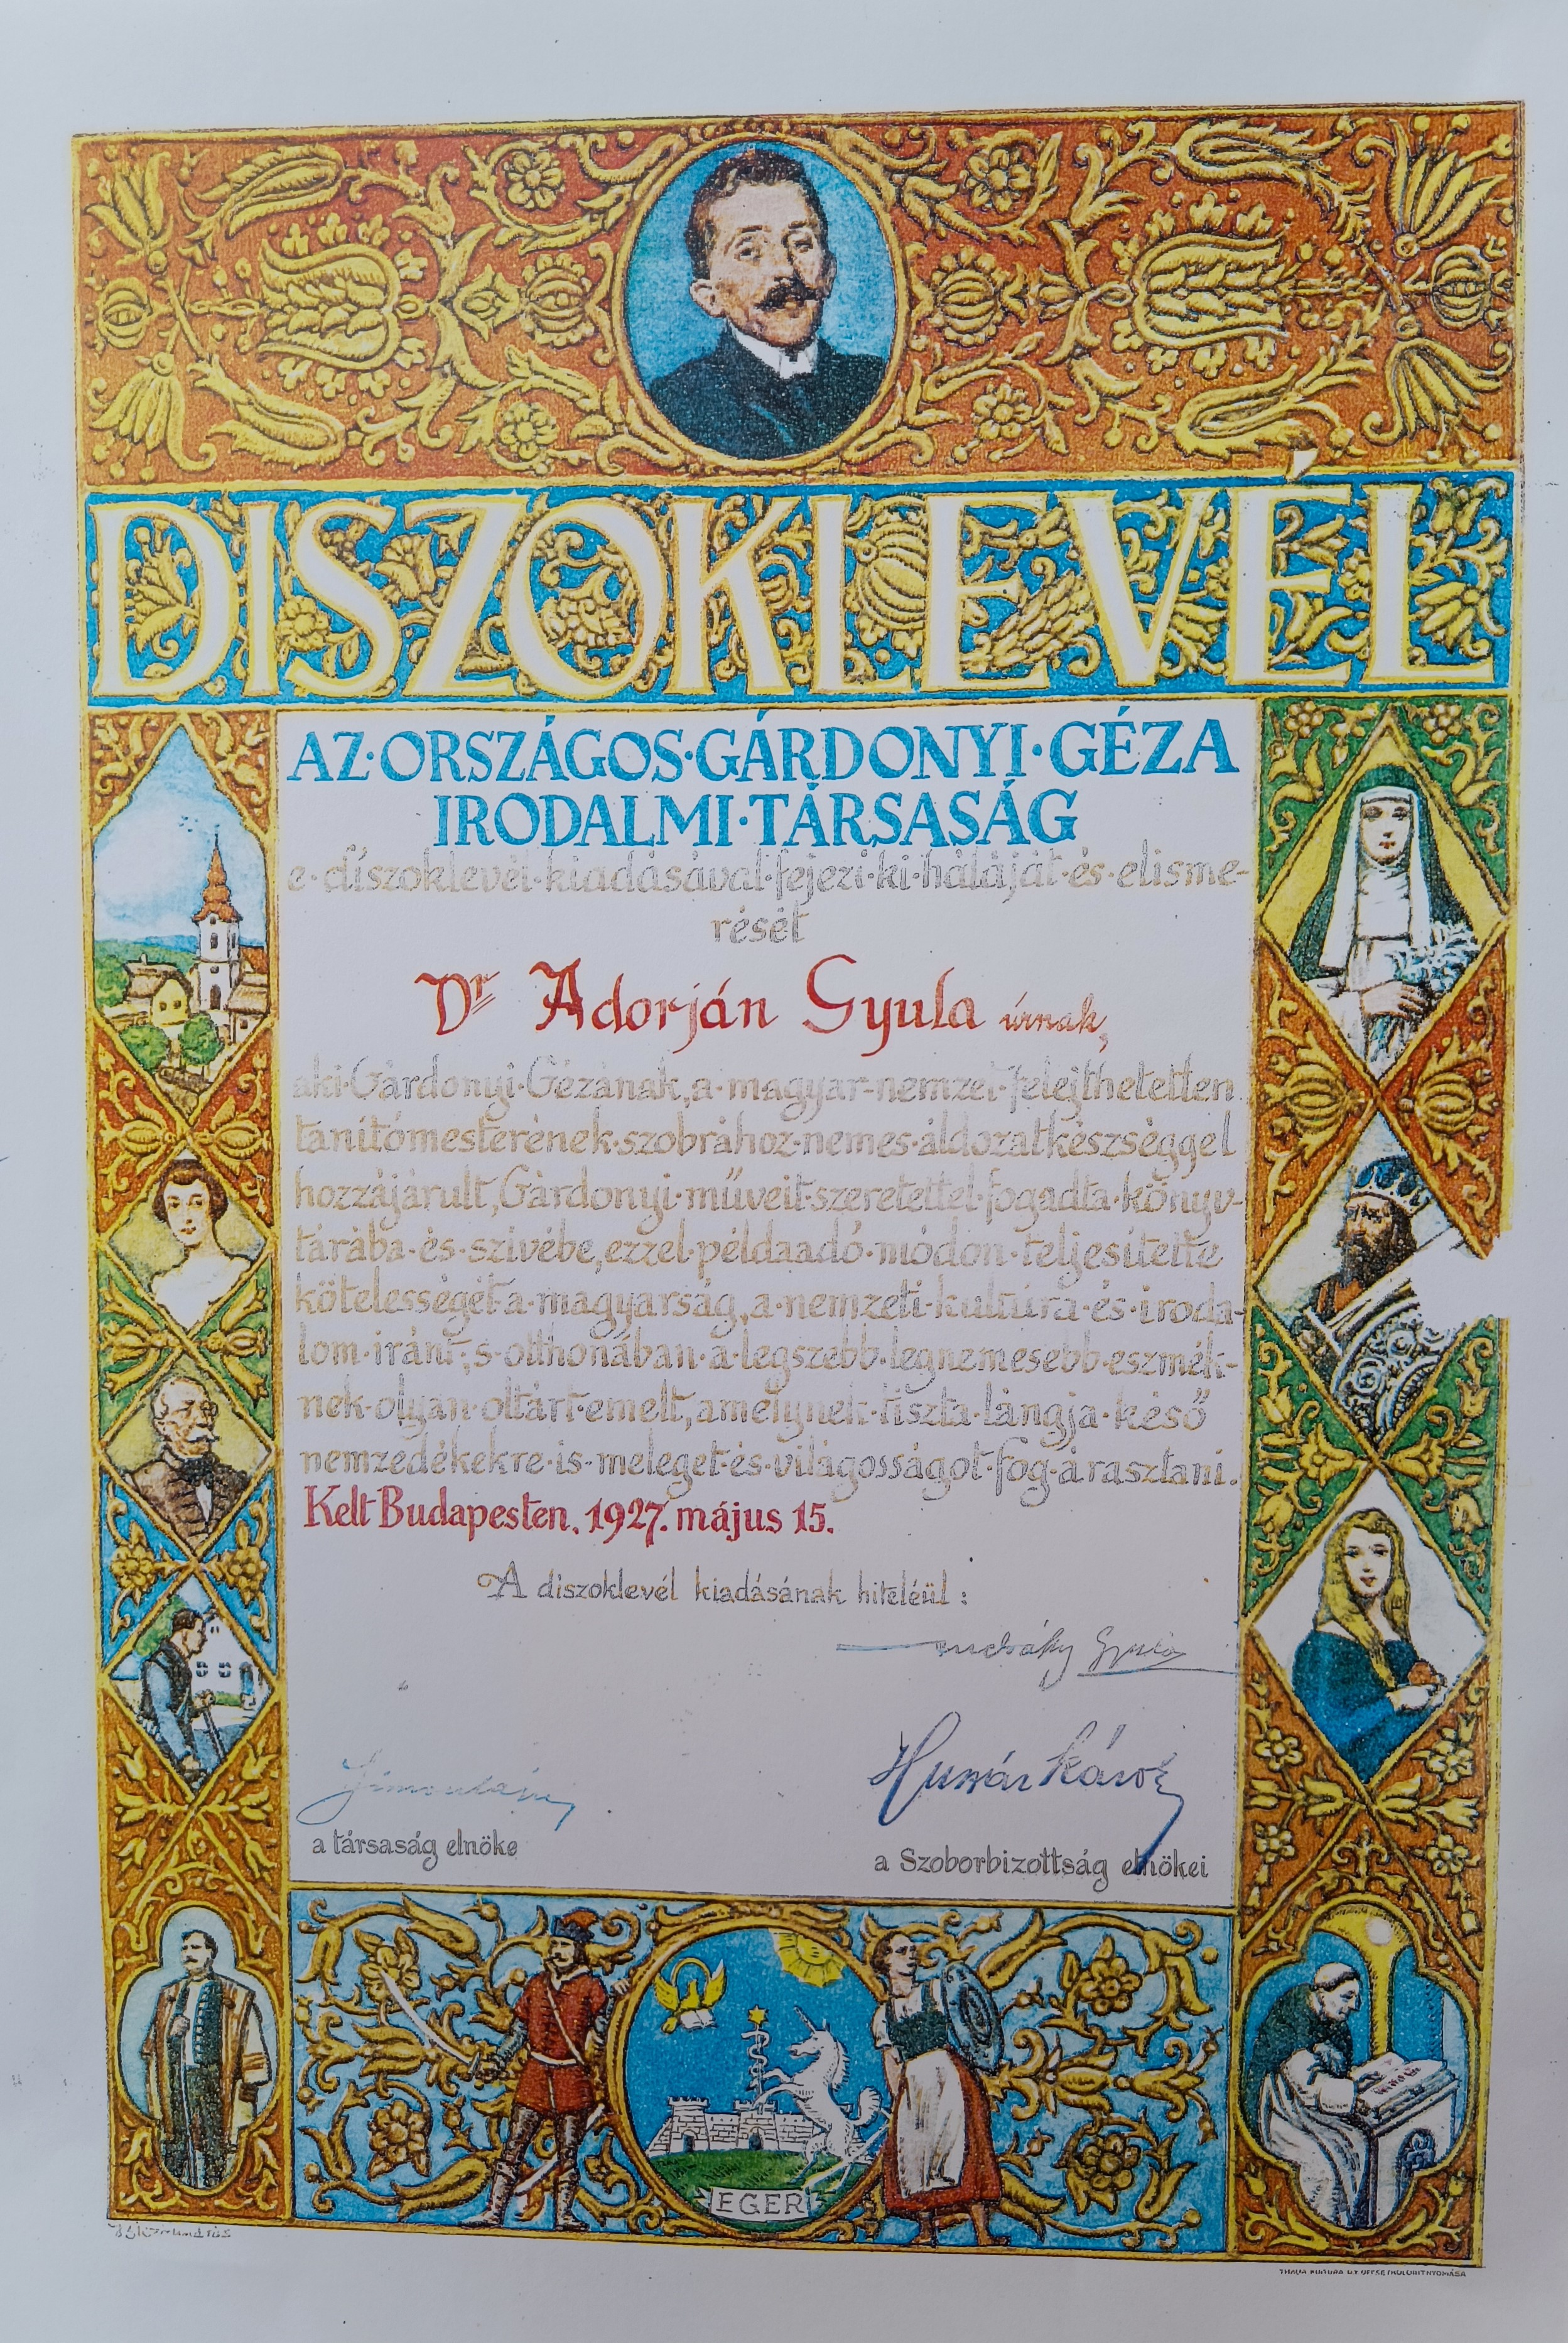 DISZOKLEVÉL
AZ·ORSZÁGOS·GÁRDONYI·GÉZA
IRODALMI·TÁRSASÁG
e·díszoklevél·kiadásával·fejezi·ki·háláját·és·elisme-
rését
Dr Adorján Gyula úrnak,
aki·Gárdonyi·Gézának,a·magyar-nemzet·felejthetetlen
tanítómesterének·szobrához·nemes·áldozatkészséggel
hozzájárult,Gárdonyi·műveit·szeretettel·fogadta·könyv-
tárába·és·szivébe,ezzel·példaadó·módon·teljesítette
kötelességét·a·magyarság,a·nemzeti·kultúra·és·iroda-
lom·iránt,s·otthonában·a·legszebb,legnemesebb·eszmék-
nek·olyan·oltárt·emelt,amelynek·tiszta·lángja·késő
nemzedékekre·is·meleget·és·világosságot·fog·árasztani.
Kelt Budapesten, 1927. május 15.
A diszoklevél kiadásának hiteléül:
Gyula
Huszár Károly
a társaság elnöke
a Szoborbizottság elnökei
EGER